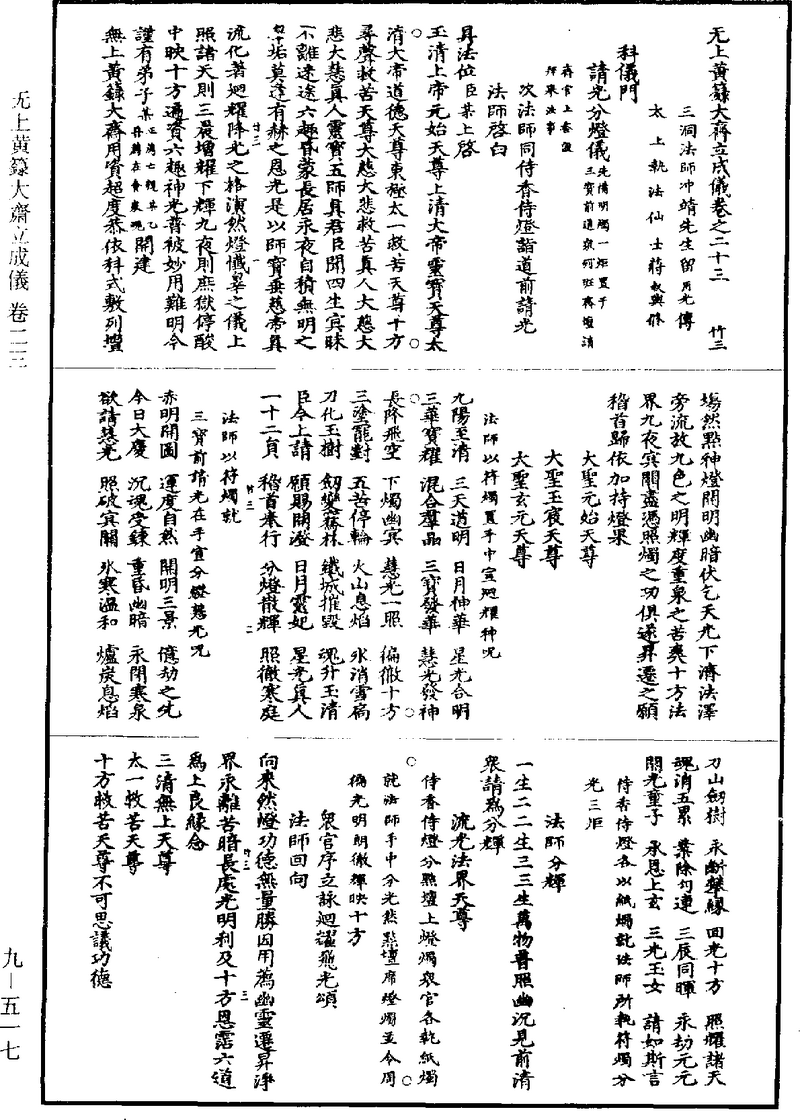 无上黃籙大齋立成儀卷之二十三 竹三
三洞法師冲靖先生留用光傳
太上執法仙士蔣叔輿修
科儀門
請光分燈儀先備明燭一炬置于三寶前道衆列班齋壇請
齋官上香設
拜眾法事
次法師同侍香侍燈詣道前請光
法師啓白
具法位臣某上啓
玉清上帝元始天尊上清大帝靈寶天尊太
清大帝道德天尊東極太一救苦天尊十方
尋聲救苦天尊大慈大悲救苦真人大慈大
悲大慧真人靈寶五師真君臣聞四生冥昧
不離迷途六趣昏蒙長居永夜自積無明之
幻垢莫逢有赫之恩光是以師寶垂慈帝真
流化著迴耀降光之格演然燈懺罪之儀上
照諸天則三晨增耀下輝九夜則庶獄停酸
中映十方遍資六趣神光普被妙用難明今
謹有弟子某 開建
無上黃籙大齋用資超度恭依科式敷列壇
場然點神燈開明幽暗伏乞天光下濟法澤
旁流放九色之明輝度重泉之苦爽十方法
界九夜冥關盡憑照燭之功俱遂昇遷之願
稽首歸依加持燈果
大聖元始天尊
大聖玉宸天尊
大聖玄元天尊
法師以符燭置手中宣迴耀神呪
九陽至清 三天道明 日月神華 星光合明
三華寶耀 混合羣品 三寶發華 慧光發神
長降飛空 下燭幽冥 慧光一照 徧徹十方
三塗罷對 五苦停輪 火山息焰 氷消雪鬲
刀化玉樹 劒變騫林 鐵城摧毀 魂升玉清
臣今上請 願賜開澄 日月靈妃 星光真人
一十二員 稽首奉行 分燈散輝 照徹寒庭
法師以符燭就
三寶前請光在手宣分燈慧光呪
赤明開圖 運度自然 開明三景 億劫之先
今日大慶 沉魂受鍊 重昏幽暗 永閉寒泉
欲請慧光 照破冥關 氷寒溫和 爐炭息焰
刀山劒樹 永斷業緣 回光十方 照耀諸天
魂消五累 業除勾連 三辰同暉 永劫元元
開光童子 承恩上玄 三光玉女 請如斯言
侍香侍燈各以紙燭就法師所執符燭分
光三炬
法師分輝
一生二二生三三生萬物普照幽沉見前清
衆請爲分輝
流光法界天尊
侍香侍燈分點壇上燈燭衆官各執紙燭
就法師手中分光然點壇席燈燭並令周
徧光明朗徹輝映十方
衆官序立詠迴耀飛光頌
法師回向
向來然燈功德無量勝因用爲幽靈遷昇淨
界永離苦暗長處光明利及十方恩霑六道
爲上良緣念
三清無上天尊
太一救苦天尊
十方救苦天尊不可思議功德
无上黄籙大齋立成儀 卷二三
九－五一七